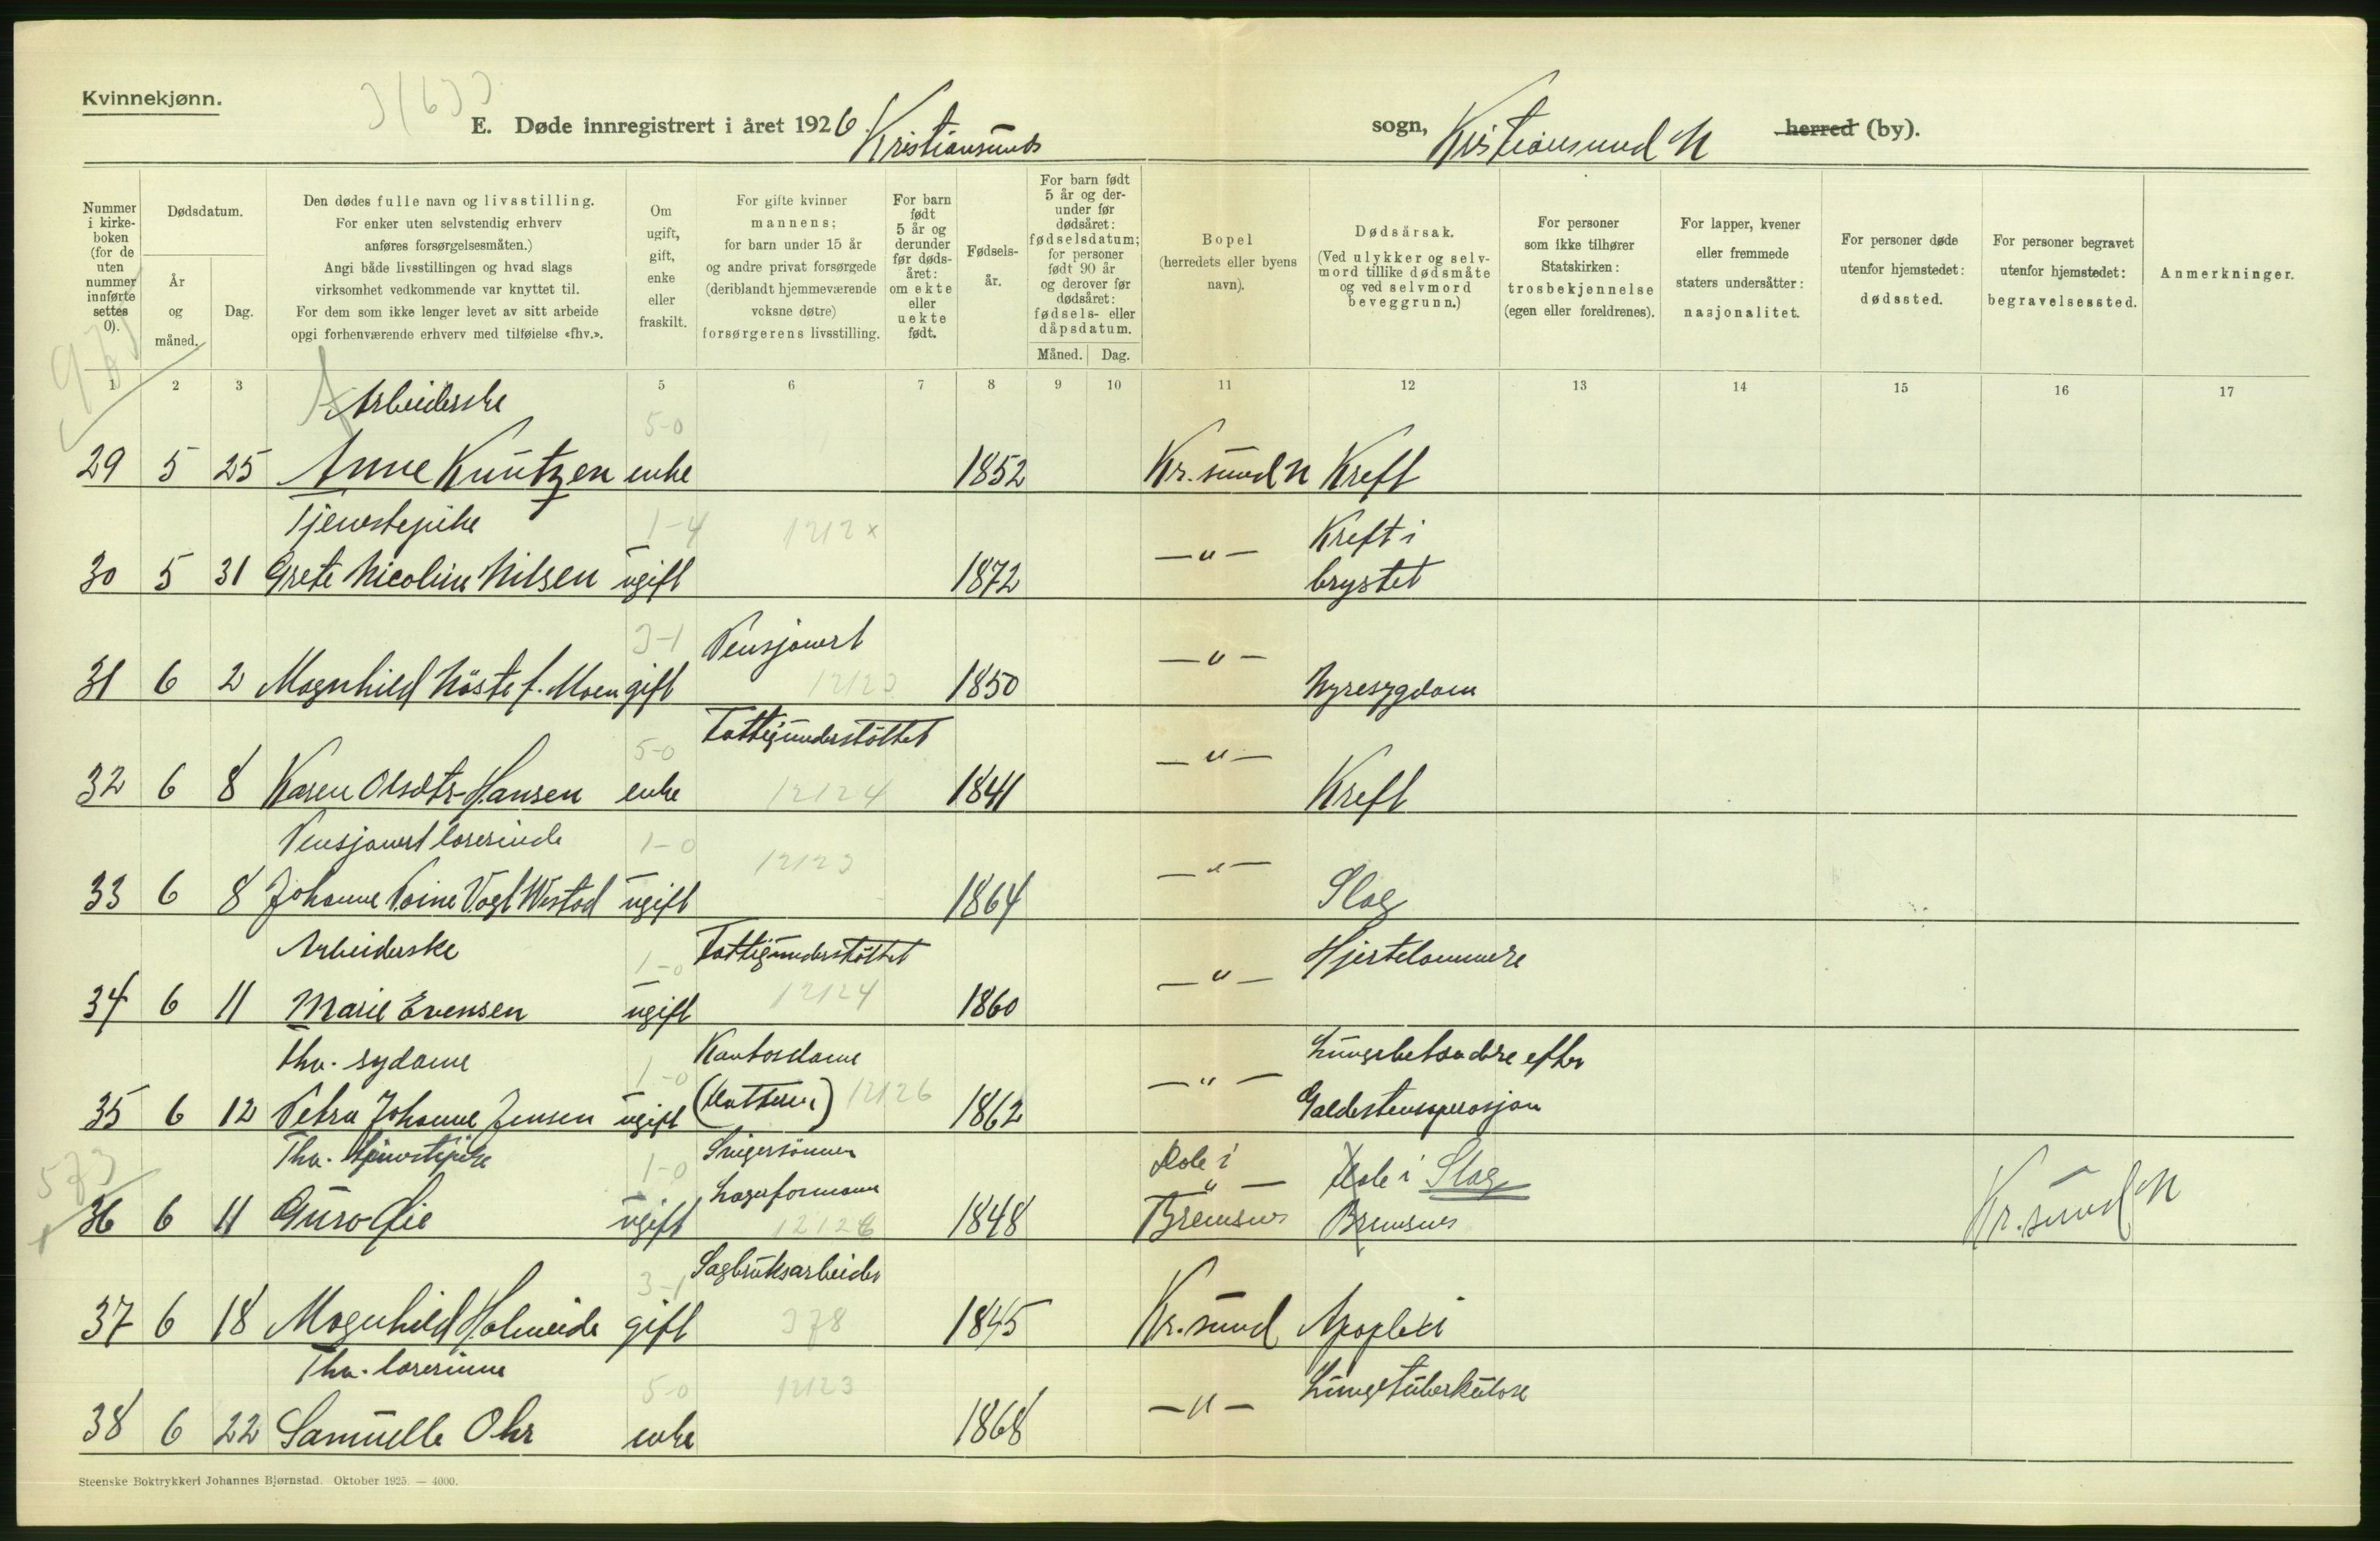 Kvinnekjønn.
E. Døde innregistrert i året 1926 Kristiansunds sogn, Kristiansund N herred (by).
Nummer i kirkeboken (for de uten nummer innførte settes 0).
Dødsdatum.
År og måned.
Dag.
Den dødes fulle navn og livsstilling.
For enker uten selvstendig erhverv
anføres forsørgelsesmåten.)
Angi både livsstillingen og hvad slags
virksomhet vedkommende var knyttet til.
For dem som ikke lenger levet av sitt arbeide
opgi forhenværende erhverv med tilføielse «fhv.».
Om ugift, gift, enke eller fraskilt.
For gifte kvinner
mannens;
for barn under 15 år
og andre privat forsørgede
(deriblandt hjemmeværende
voksne døtre)
forsørgerens livsstilling.
For barn født 5 år og derunder før dødsåret: om ekte eller uekte født.
Fødselsår.
For barn født 5 år og derunder før dødsåret: fødselsdatum; for personer født 90 år og derover før dødsåret: fødsels- eller dåpsdatum.
Måned. Dag.
Bopel
(herredets eller byens
navn).
Dødsårsak.
(Ved ulykker og selvmord tillike dødsmåte og ved selvmord beveggrunn.)
For personer
som ikke tilhører
Statskirken:
trosbekjennelse
(egen eller foreldrenes).
For lapper, kvener
eller fremmede
staters undersåtter:
nasjonalitet.
For personer døde
utenfor hjemstedet:
dødssted.
For personer begravet
utenfor hjemstedet:
begravelsessted.
Anmerkninger.
1 2 3 5 6 7 8 9 10 11 12 13 14 15 16 17
Arbeiderske
5-0
29 5 25 Anne Knutzen enke 1852 Kr.sund N Kreft
Tjenestepike 1-4 1212x Kreft i
30 5 31 Grete Nicoline Nilsen ugift 1872 —"— brystet
3-1 Pensjonert
31 6 2 Magnhild Nöste f. Moen gift 12123 1850 —"— Nyresygdom
5-0 Fattigunderstöttet
32 6 8 Karen Olsdtr Hansen enke 12124 1841 —"— Kreft
Pensjonert lærerinde 1-0 12123
33 6 8 Johanne Vogt Westad ugift 1864 —"— Slag
Arbeiderske 1-0 Fattigunderstöttet
34 6 11 Marie Evensen ugift 12124 1860 —"— Hjertelammelse
fhv. sydame 1-0 Kontordame Lungebetændelse efter
35 6 12 Petra Johanne Jensen ugift 12126 1862 —"— Galdestensoperasjon
Fhv. tjenestepike 1-0 Dale i Dale i Slag
36 6 11 Guro Øie ugift 12126 1848 —"— Bremsnes Bremsnes Kr.sund N
3-1 Sagbruksarbeider
37 6 18 Magnhild Holmeide gift 378 1845 Kr.sund Apopleksi
Fhv. lærerinne 5-0 12123 Lungetuberkulose
38 6 22 Samuelle Ohr enke 1868 —"—
Steenske Boktrykkeri Johannes Bjørnstad. Oktober 1925. — 4000.